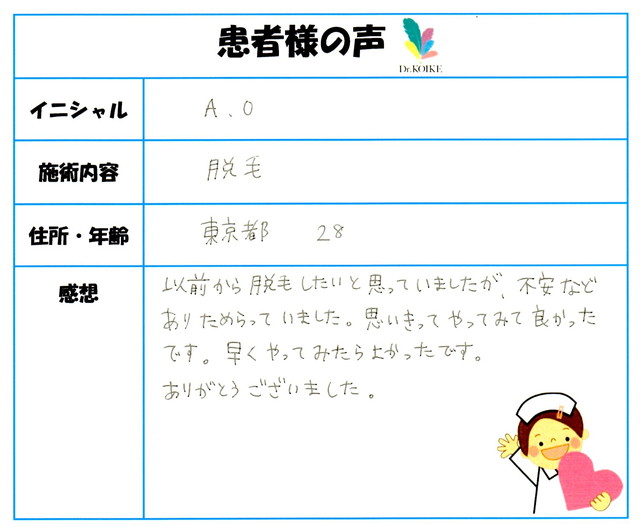 患者様の声
Dr.KOIKE
イニシャル A.O
施術内容 脱毛
住所・年齢 東京都 28
感想
以前から脱毛したいと思っていましたが、不安など
ありためらっていました。思いきってやってみて良かった
です。早くやってみたらよかったです。
ありがとうございました。